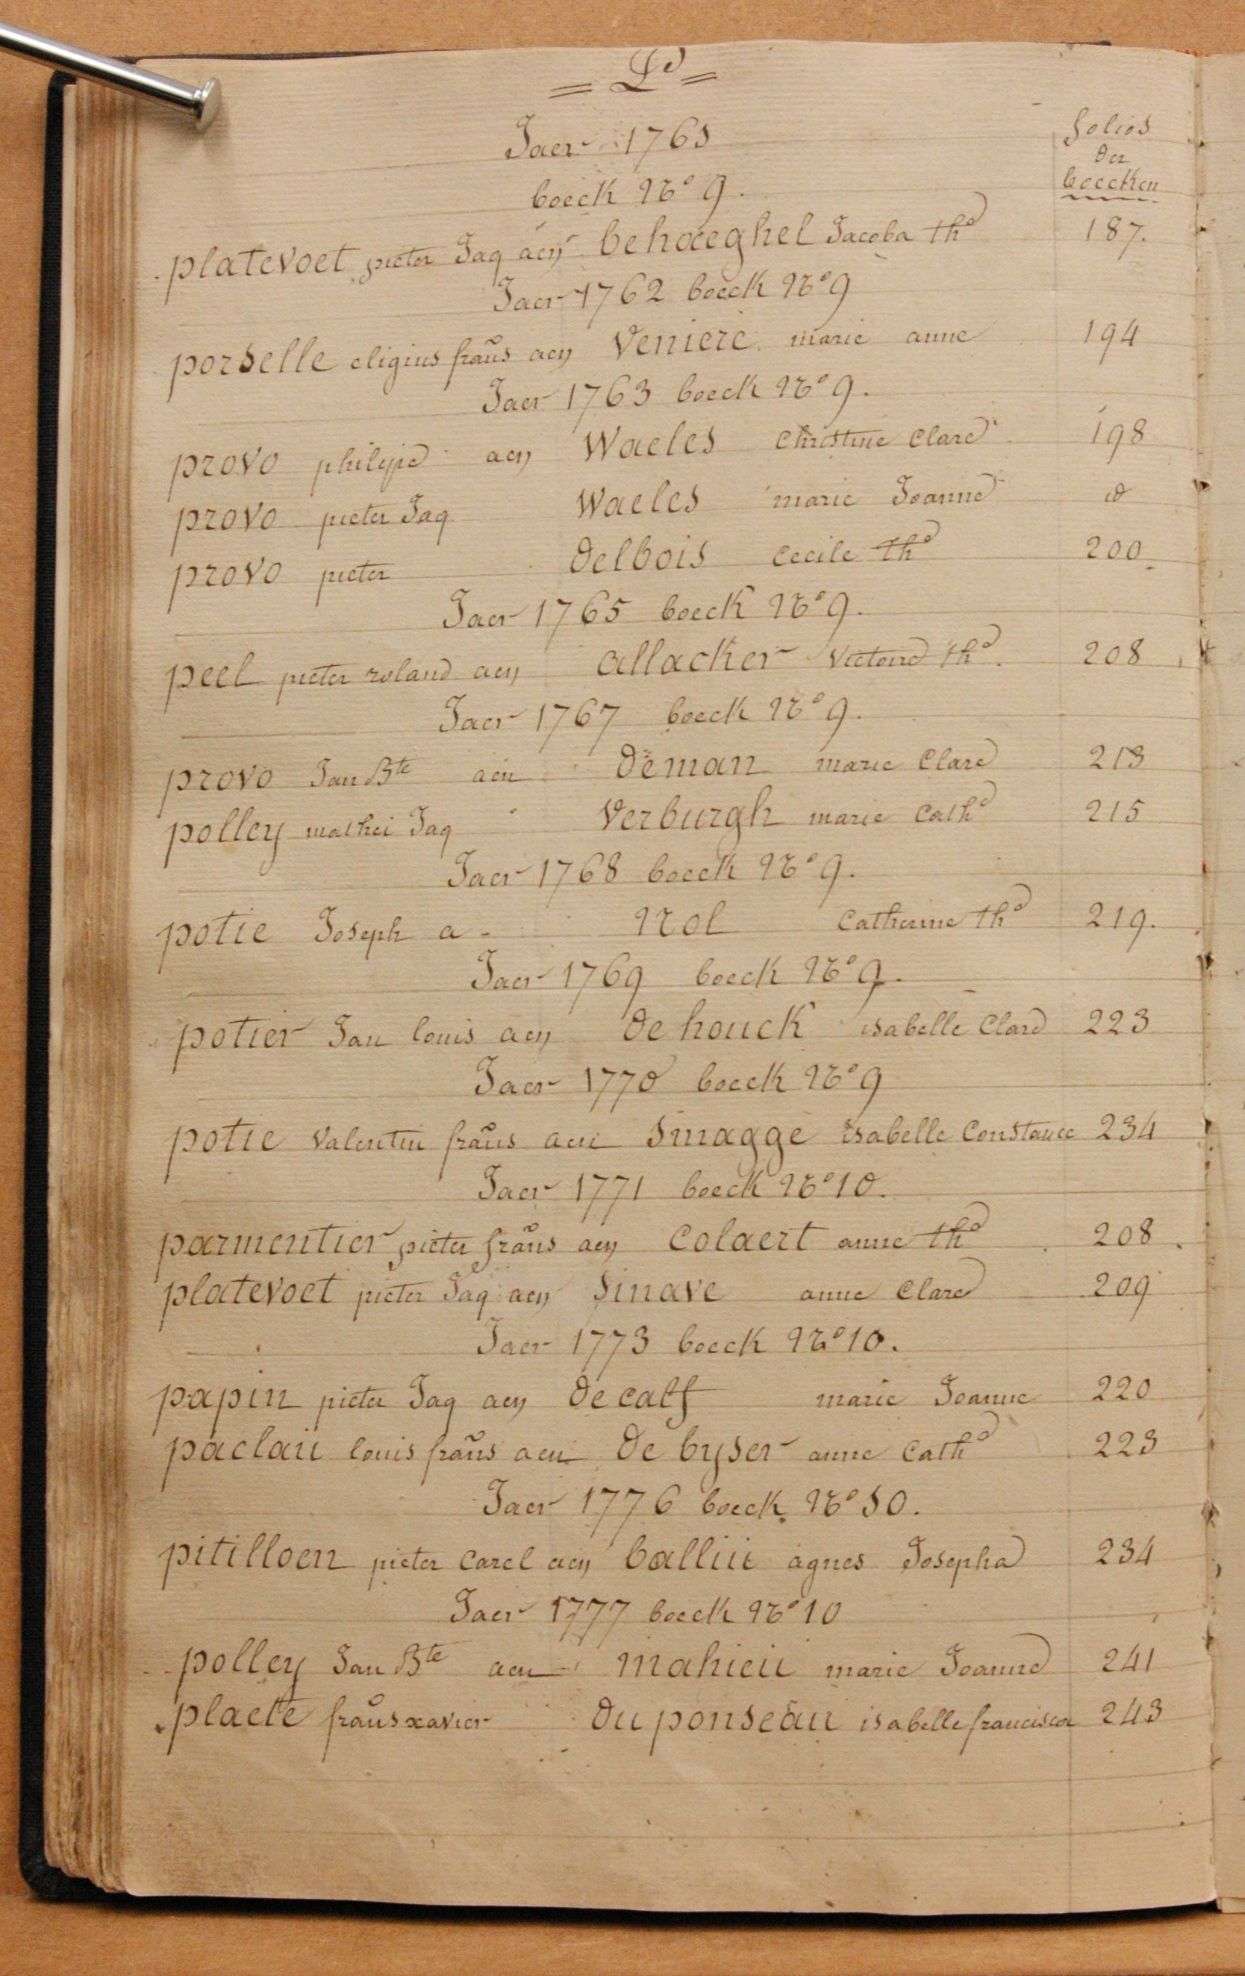 = P =
Jaer 1761
folios
der
boecken
boeck No 9.
platevoet pieter Jaq aen behaeghel Jacoba tha 187.
Jaer 1762 boeck No 9
porselle eligius frans aen veniere marie anne 194
Jaer 1763 boeck No 9.
provo philippe aen Waeles Christine Clare 198
provo pieter Jaq Waeles marie Joanne d
provo pieter delbois Cecile tha 200
Jaer 1765 boeck No 9.
peel pieter roland aen allacker Victoire tha. 208
Jaer 1767 boeck No 9.
provo Jan Bte aen deman marie Clare 213
polley mathei Jaq verburgh marie Catha 215
Jaer 1768 boeck No 9.
potie Joseph a - Nol Catherine tha 219.
Jaer 1769 boeck No 9.
potier Jan louis aen de houck isabelle Clare 223
Jaer 1770 boeck No 9
potie valentin frans aen smagge isabelle Constance 234
Jaer 1771 boeck No 10.
parmentier pieter frans aen Colaert anne tha 208.
platevoet pieter Jaq aen sinave anne Clare 209
Jaer 1773 boeck No 10.
papin pieter Jaq aen de calf marie Joanne 220
paclau louis frans aen de byser anne Catha 223
Jaer 1776 boeck No 10.
pitilloen pieter Carel aen balliu agnes Josepha 234
Jaer 1777 boeck No 10
polley Jan Bte aen mahieu marie Joanne 241
placte frans xavier du ponseau isabelle francisca 243